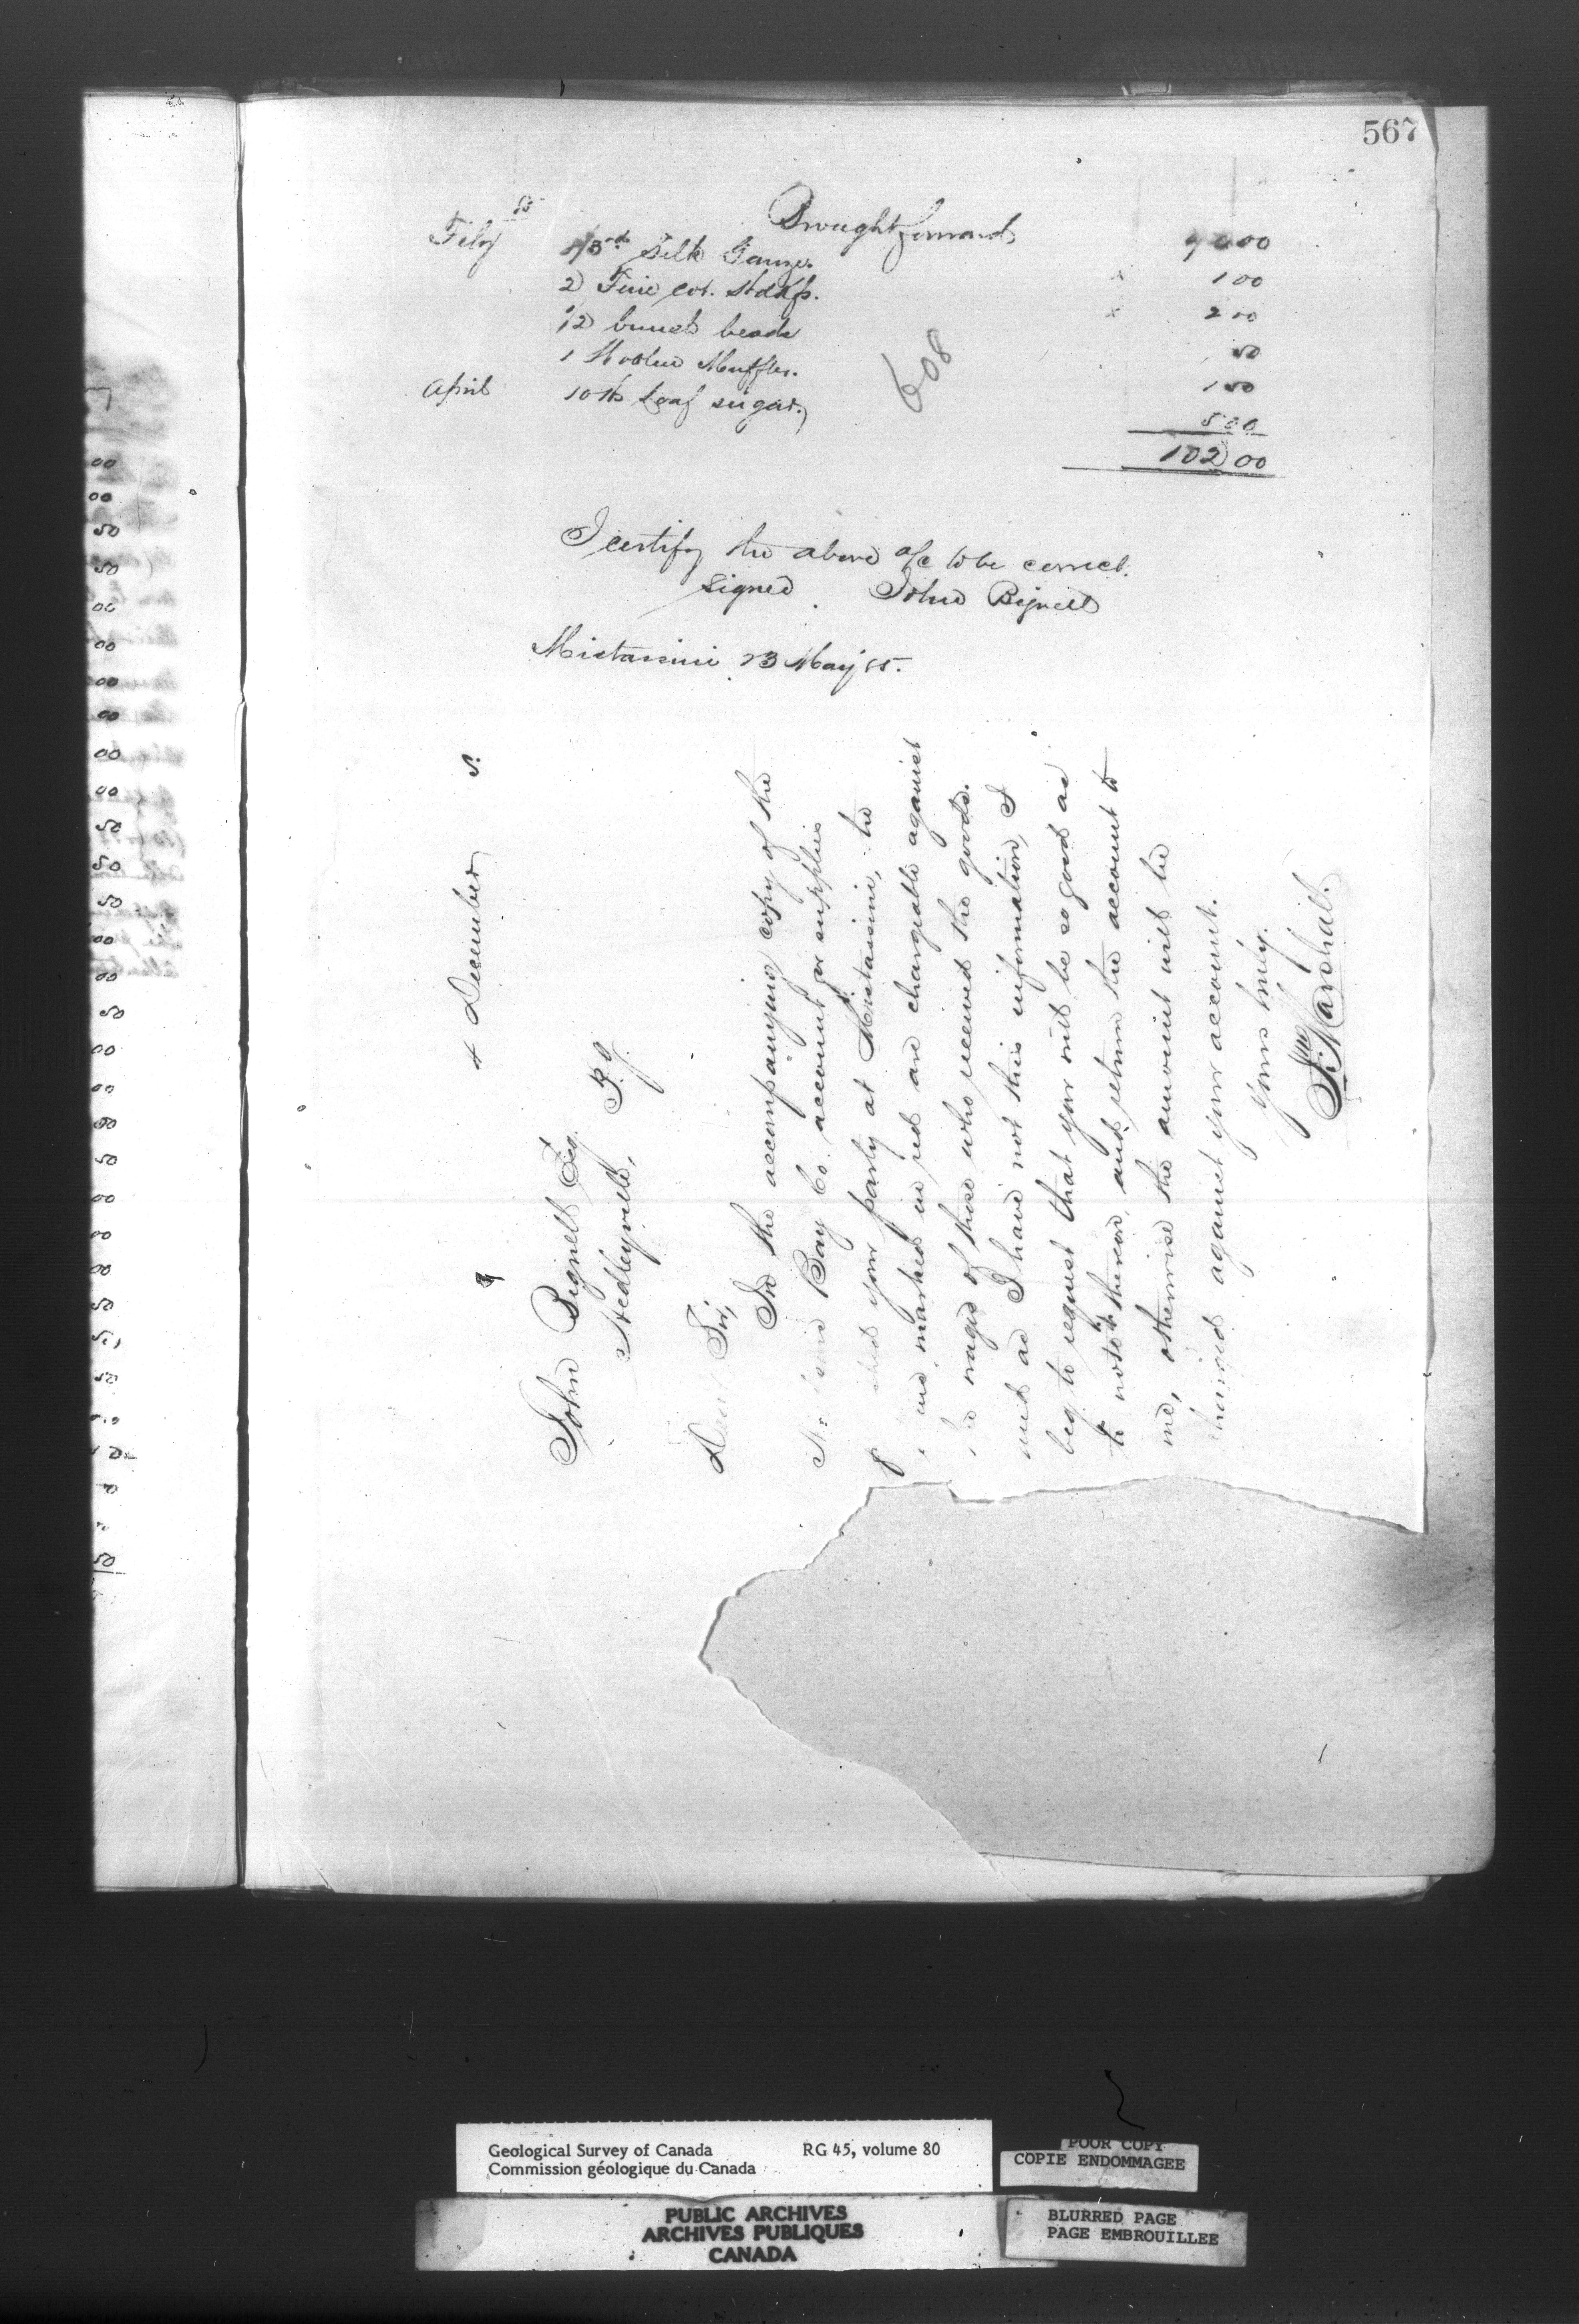 567
Brought forward 92 00
Feby 1/3rd Silk Gauze. x 1 00
2 Fine Col. Hdkfs. x 2 00
1/2 bunch beads 50
1 Woolen Muffler. 1 50
April 10 lbs Loaf sugar. 5 00
102 00
608
I certify the above a/c to be correct.
Signed John Bignell
Mistassini 23 May 85.
4 December 5.
John Bignell Esq.
Stedleyville, P.Q.
Dear Sir,
In the accompanying copy of the
Bay Co. account for supplies
your party at Mistassini, the
marked in red are chargeable against
wages of those who received the goods.
as I have not this information, I
beg to request that you will be so good as
to note thereon, and return the account to
me, otherwise the amount will be
charged against your account.
Yours truly.
Jno. Marshall.
00
00
50
50
00
00
00
00
00
00
50
50
50
00
00
50
00
00
00
50
00
00
00
50
50
50
Geological Survey of Canada RG 45, volume 80
Commission géologique du Canada
POOR COPY
COPIE ENDOMMAGEE
PUBLIC ARCHIVES
ARCHIVES PUBLIQUES
CANADA
BLURRED PAGE
PAGE EMBROUILLEE